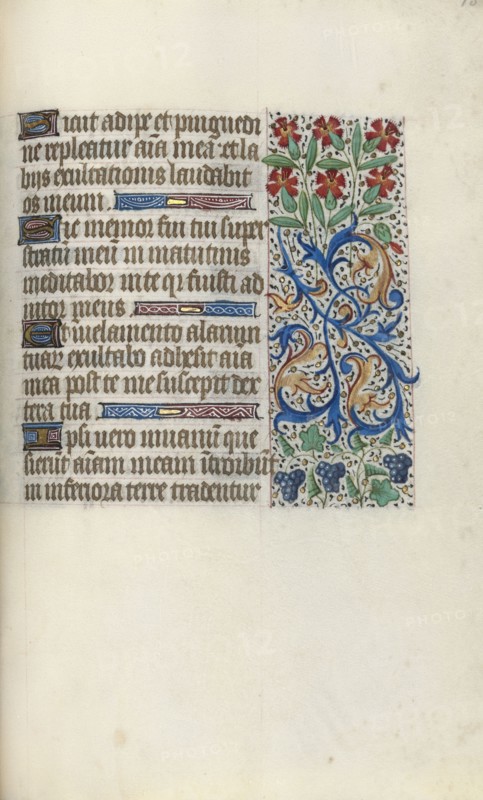 Sicut adipe et pinguedi
ne repleatur aīa mea et la
biis exultationis laudabit
os meum.
Sic memor fui tui super
stratū meū in matutinis
meditabor in te qr fuisti ad
iutor meus
Et in velamento alarum
tuarꝝ exultabo adhesit aīa
mea post te me suscepit dex
tera tua.
Ipsi vero in vanū que
sierūt aīam meam ītroibūt
in inferiora terre tradentur